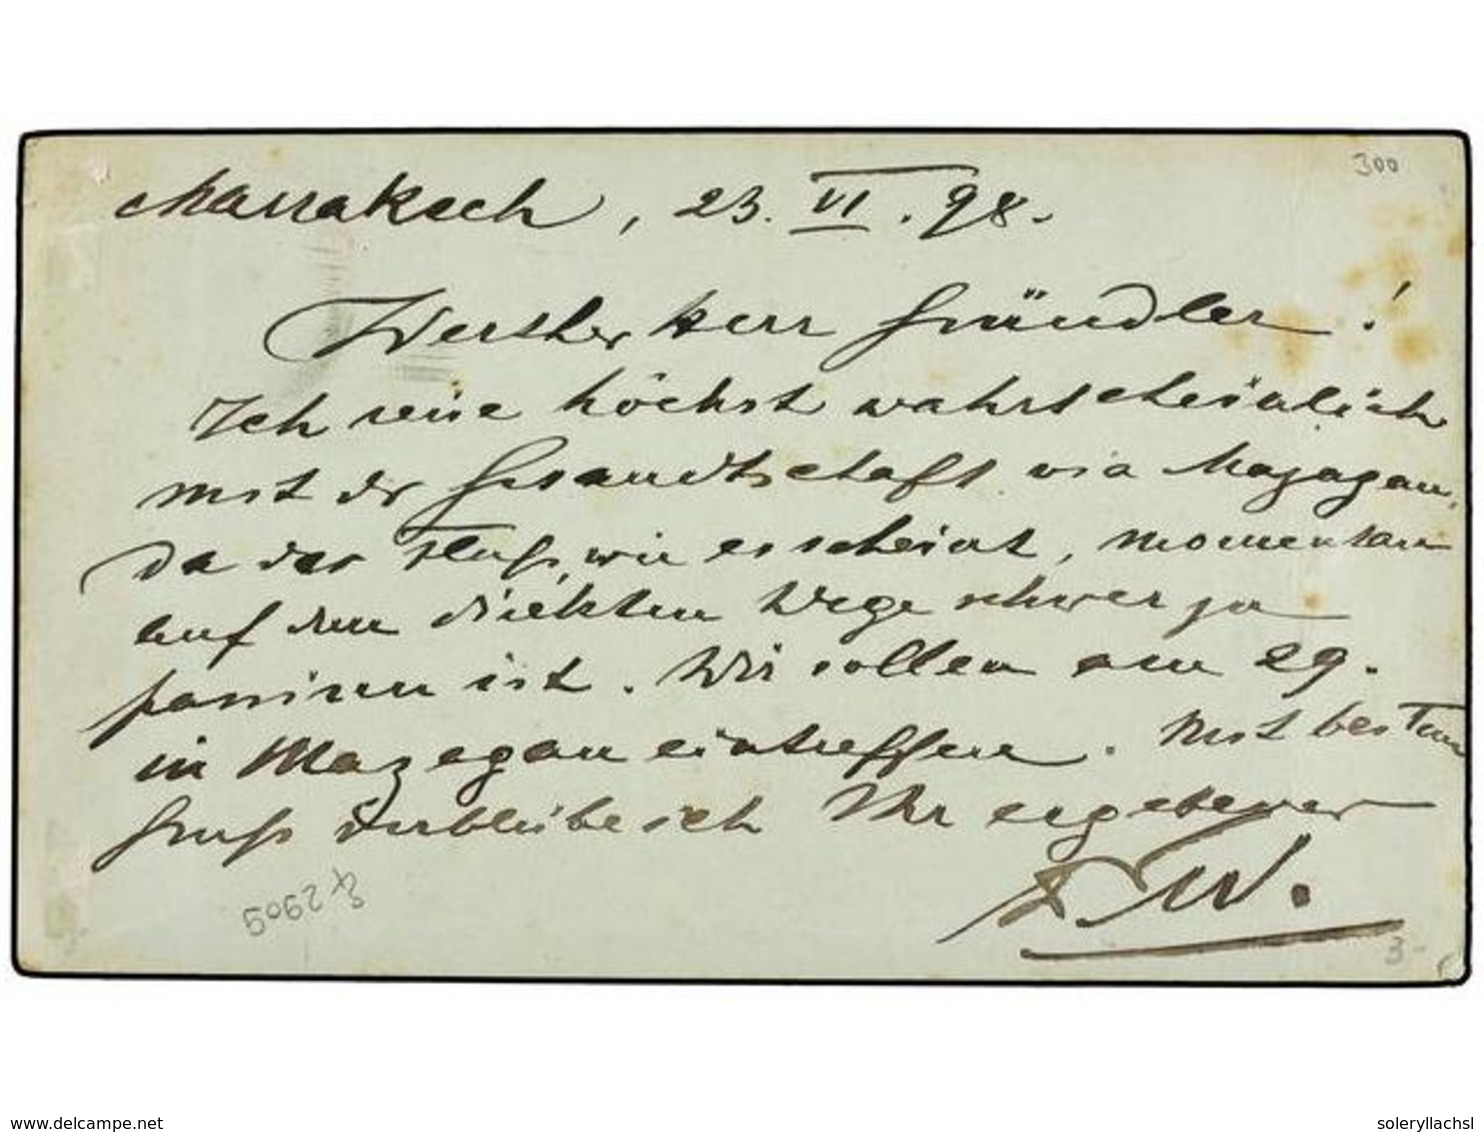 300
Marrakech, 23. VI. 98.
Werther Herr Gründler!
Ich reise höchst wahrscheinlich
mit der Gesandtschaft via Mazagan,
da der Fluß, wie es scheint, momentan
auf dem direkten Wege schwer zu
passiren ist. Wir sollen am 29.
in Mazagan eintreffen. Mit bestem
Gruß verbleibe ich Ihr ergebener
42909
3-
delcampe.net
soleryllachsl